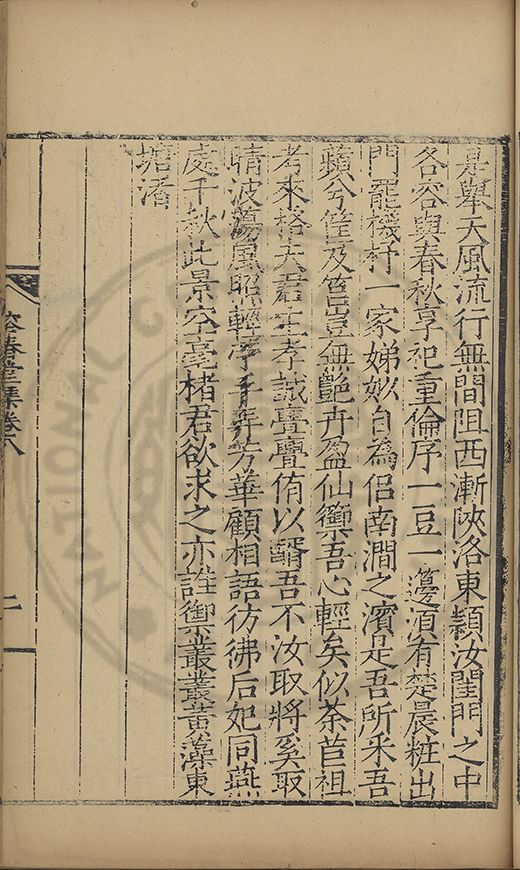 是舉大風流行無間阻西漸陝洛東潁汝閨門之中
各容與春秋享祀重倫序一豆一籩酒有楚晨粧出
門罷機杼一家娣姒自為侶南澗之濱是吾所采吾
蘋兮筐及筥豈無艷卉盈仙籞吾心輕矣似荼苢祖
考來格夫君主孝誠亹亹侑以醑吾不汝取將奚取
晴波蕩風昭輕苧手弄芳華顧相語彷彿后妃同燕
處千秋此景空毫楮君欲求之亦詎禦叢叢黃藻東
塘渚
容春堂集卷八
二